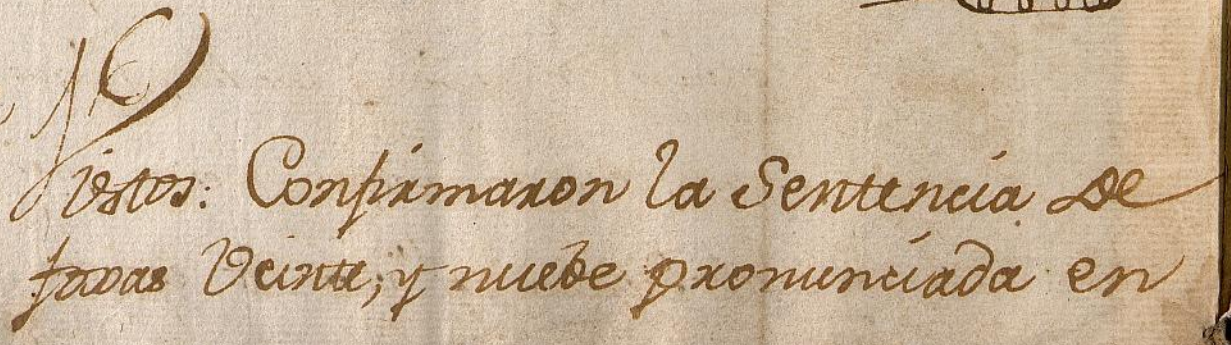 Vistos: Confirmaron la Sentencia de
foxas Veinte, y nuebe pronunciada en